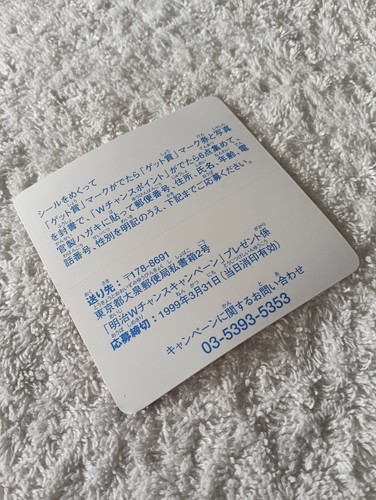 シールをめくって
「ゲット賞」マークがでたら「ゲット賞」マーク券と写真
を封書で、「Wチャンスポイント」がでたら6点集めて、
官製ハガキに貼って郵便番号、住所、氏名、年齢、電
話番号、性別を明記のうえ、下記までご応募ください。
送り先:〒178-8691
東京都大泉郵便局私書箱2号
「明治Wチャンスキャンペーン」プレゼント係
応募締切:1999年3月31日(当日消印有効)
キャンペーンに関するお問い合わせ
03-5393-5353